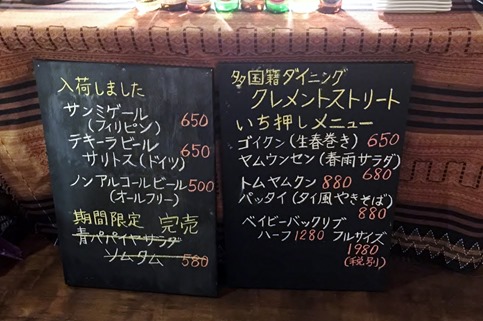 入荷しました
サンミゲール
(フィリピン) 650
テキーラビール
サリトス(ドイツ) 650
ノンアルコールビール 500
(オールフリー)
期間限定 完売
青パパイヤサラダ
ソムタム 580
多国籍ダイニング
クレメントストリート
いち押しメニュー
ゴイクン(生春巻き) 650
ヤムウンセン(春雨サラダ)
680
トムヤムクン 880
パッタイ(タイ風やきそば)
880
ベイビーバックリブ
ハーフ 1280 フルサイズ
1980
(税別)